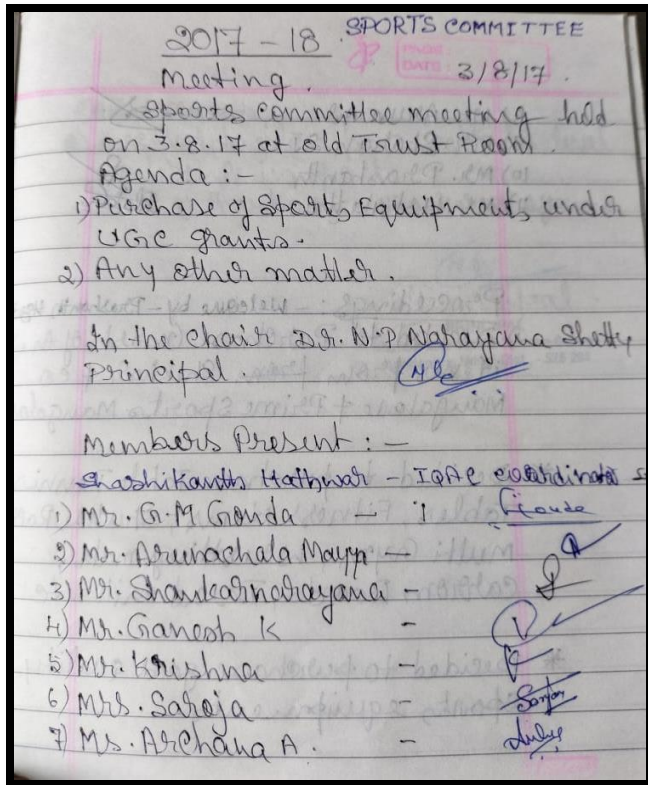 SPORTS COMMITTEE
2017-18
PAGE
DATE: 3/8/17.
Meeting.
Sports committee meeting held
on 3.8.17 at old Trust Room.
Agenda :-
1) Purchase of Sports Equipments under
UGC grants.
2) Any other matter.
In the chair Dr. N.P Narayana Shetty
Principal.
Members Present : -
Shashikanth Hathwar - IQAC coordinator
1) Mr. G.M Gonda - Gonda
2) Mr. Arunachala Mayya -
3) Mr. Shankarnarayana -
4) Mr. Ganesh K -
5) Mr. Krishna -
6) Mrs. Saroja -
7) Ms. Archana A. -